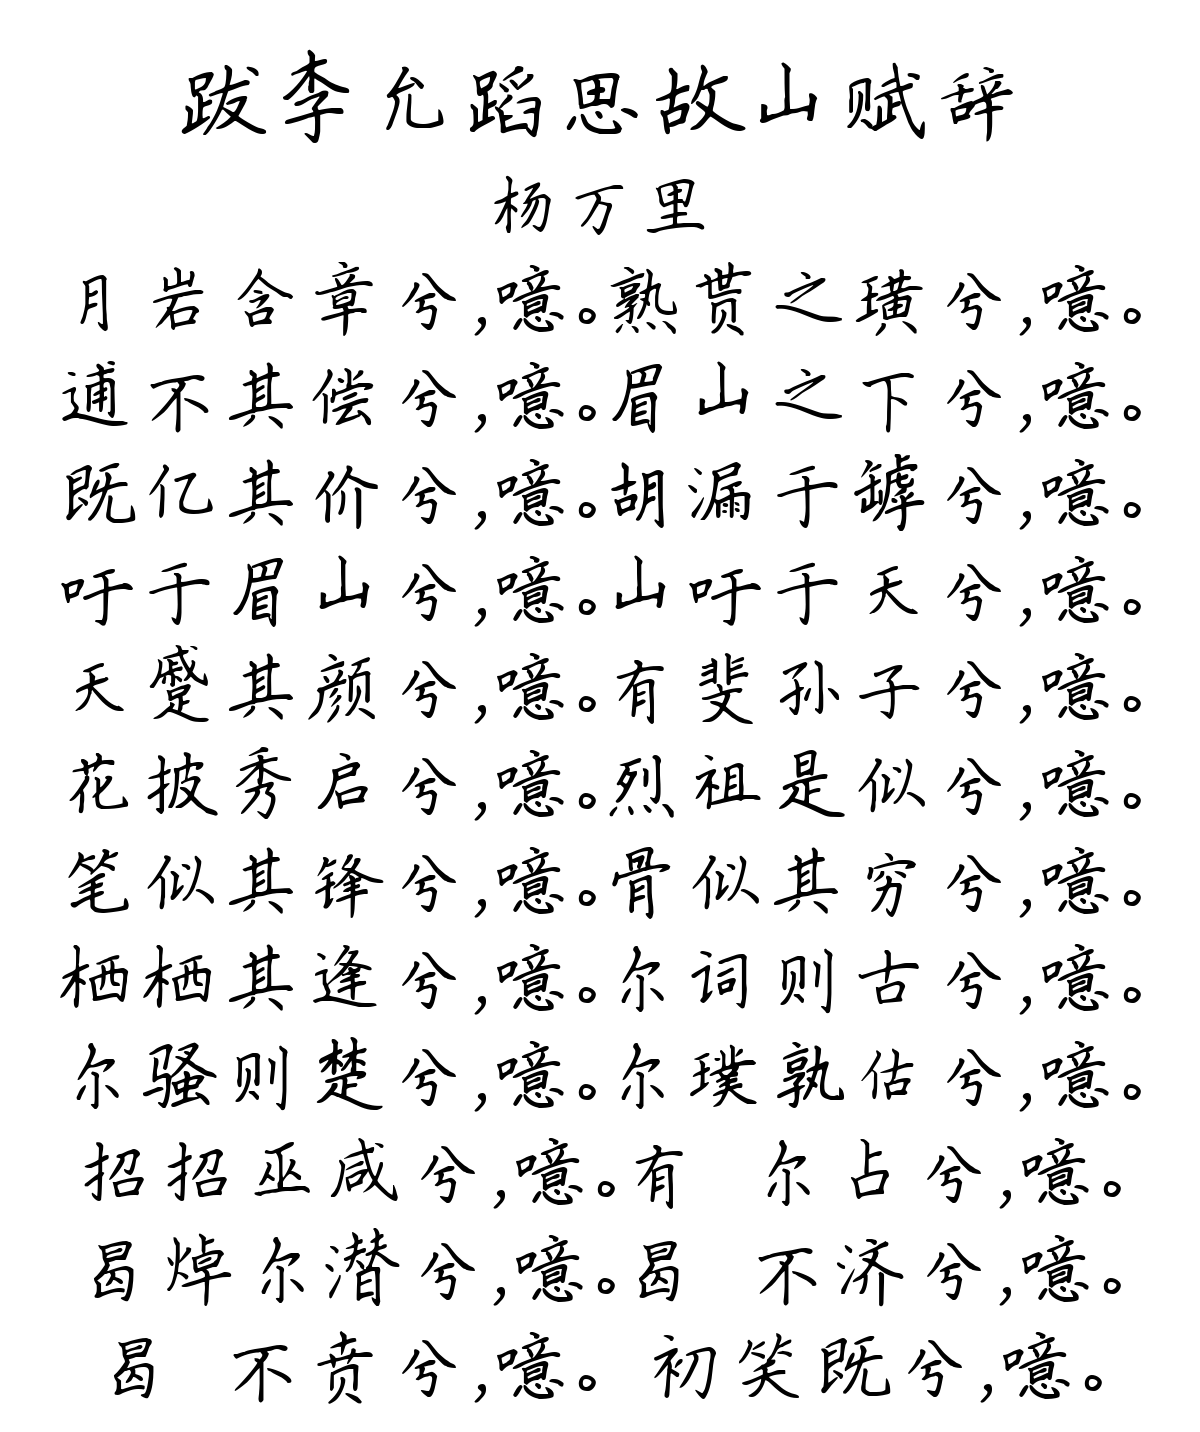 跋李允蹈思故山赋辞
杨万里
月岩含章兮,噫。熟贳之璜兮,噫。
逋不其偿兮,噫。眉山之下兮,噫。
既亿其价兮,噫。胡漏于罅兮,噫。
吁于眉山兮,噫。山吁于天兮,噫。
天蹙其颜兮,噫。有斐孙子兮,噫。
花披秀启兮,噫。烈祖是似兮,噫。
笔似其锋兮,噫。骨似其穷兮,噫。
栖栖其逢兮,噫。尔词则古兮,噫。
尔骚则楚兮,噫。尔璞孰估兮,噫。
招招巫咸兮,噫。有 尔占兮,噫。
曷焯尔潜兮,噫。曷 不济兮,噫。
曷 不贲兮,噫。 初笑既兮,噫。